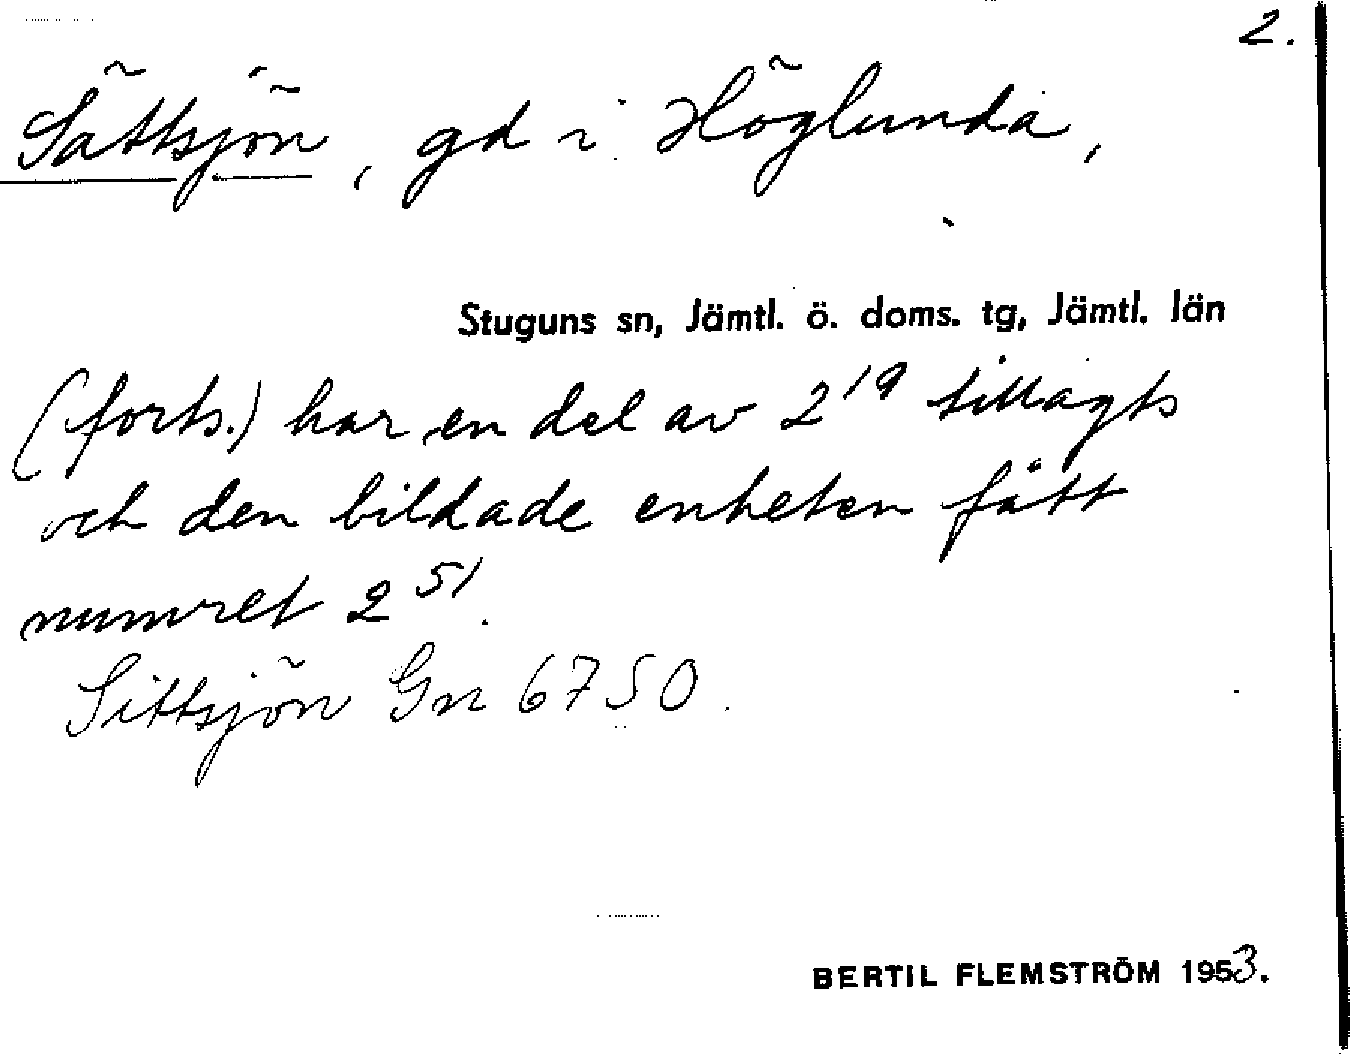 2.
Sättsjön, gd i Höglunda,
Stuguns sn, Jämtl. ö. doms. tg, Jämtl. län
(forts.) har en del av 2¹⁹ tillagts
och den bildade enheten fått
numret 2⁵¹.
Sittsjön Gn 6750.
BERTIL FLEMSTRÖM 1953.